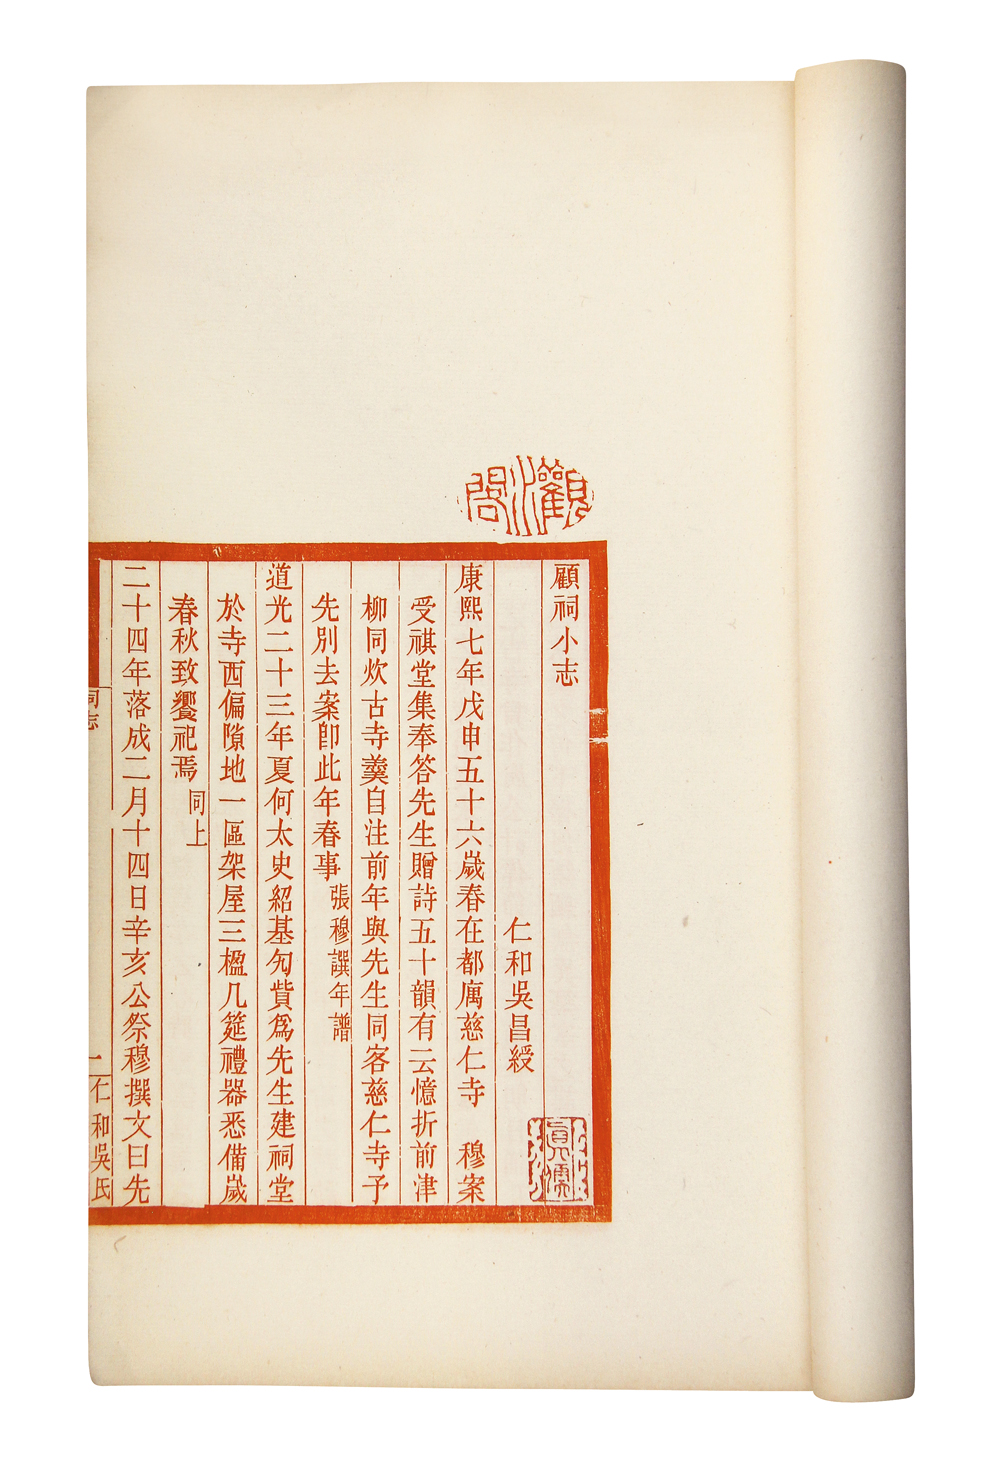 觀水閣
顧祠小志
仁和吳昌綬
康熙七年戊申五十六歲春在都厲慈仁寺　穆案
受祺堂集奉答先生贈詩五十韻有云憶折前津
柳同炊古寺羹自注前年與先生同客慈仁寺予
先別去案卽此年春事張穆譔年譜
道光二十三年夏何太史紹基匃貲爲先生建祠堂
於寺西偏隙地一區架屋三楹几筵禮器悉備歲
春秋致饗祀焉同上
二十四年落成二月十四日辛亥公祭穆撰文曰先
祠志
一
仁和吳氏